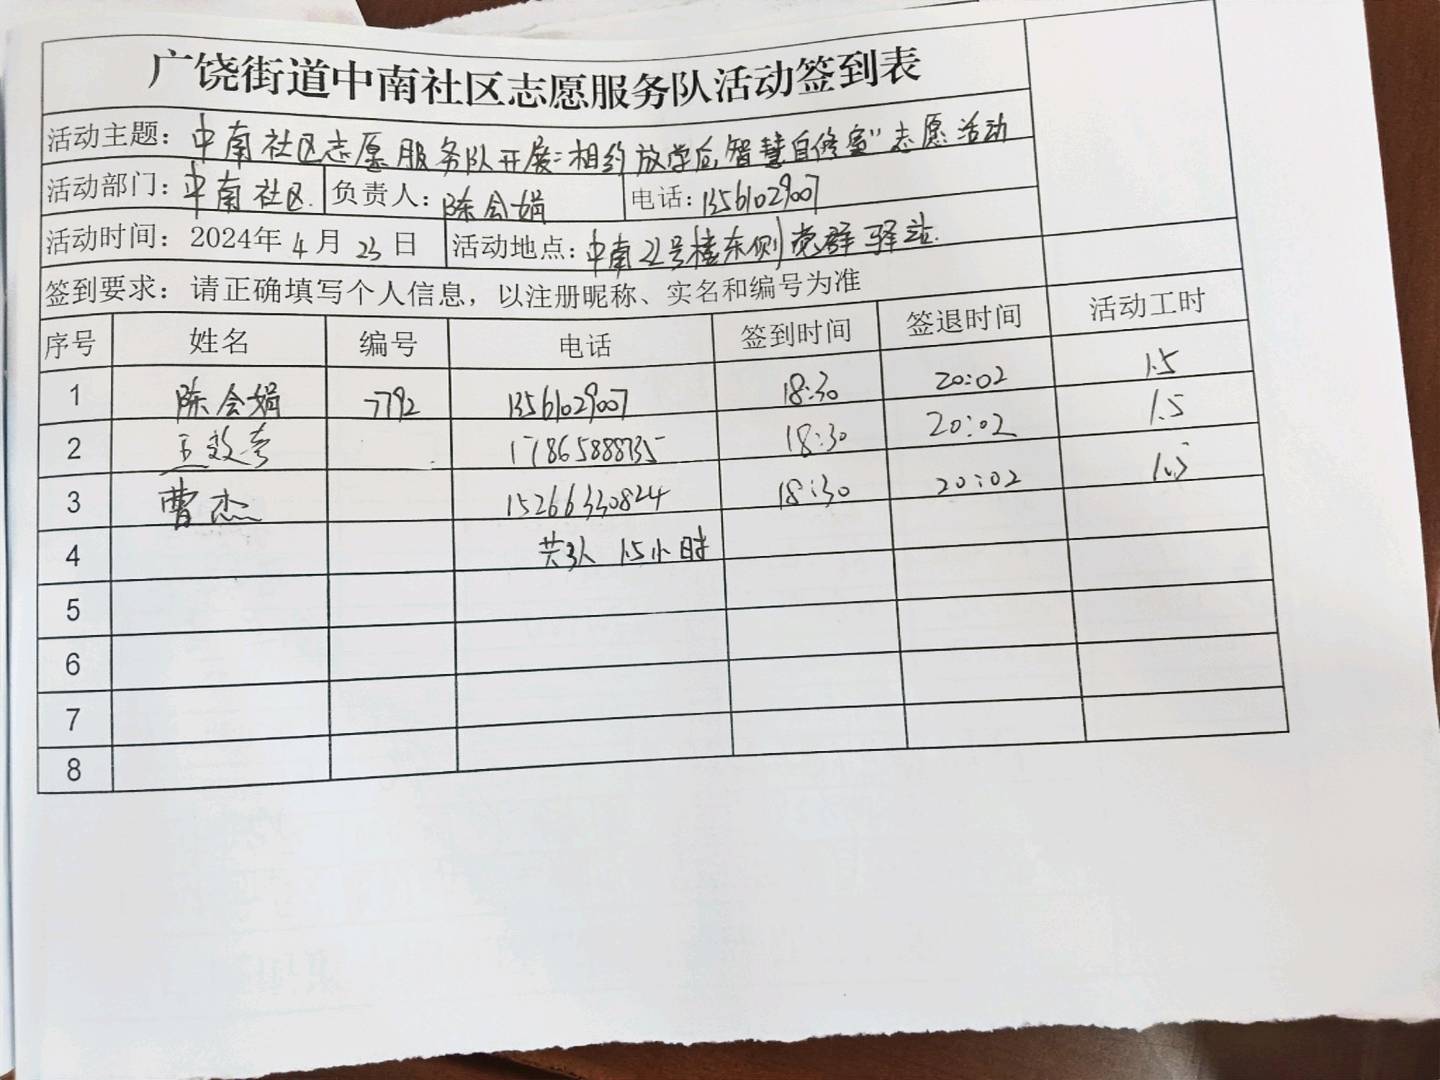 广饶街道中南社区志愿服务队活动签到表
活动主题：中南社区志愿服务队开展"相约放学后,智慧自修室"志愿活动
活动部门：中南社区. 负责人：陈会娟 电话：13561029007
活动时间：2024年4月23日 活动地点：中南22号楼东侧党群驿站.
签到要求：请正确填写个人信息，以注册昵称、实名和编号为准
序号 姓名 编号 电话 签到时间 签退时间 活动工时
1 陈会娟 7792 13561029007 18:30 20:02 1.5
2 王 17865888735 18:30 20:02 1.5
3 曹杰 15266330824 18:30 20:02 1.5
4 共3人 1.5小时
5
6
7
8